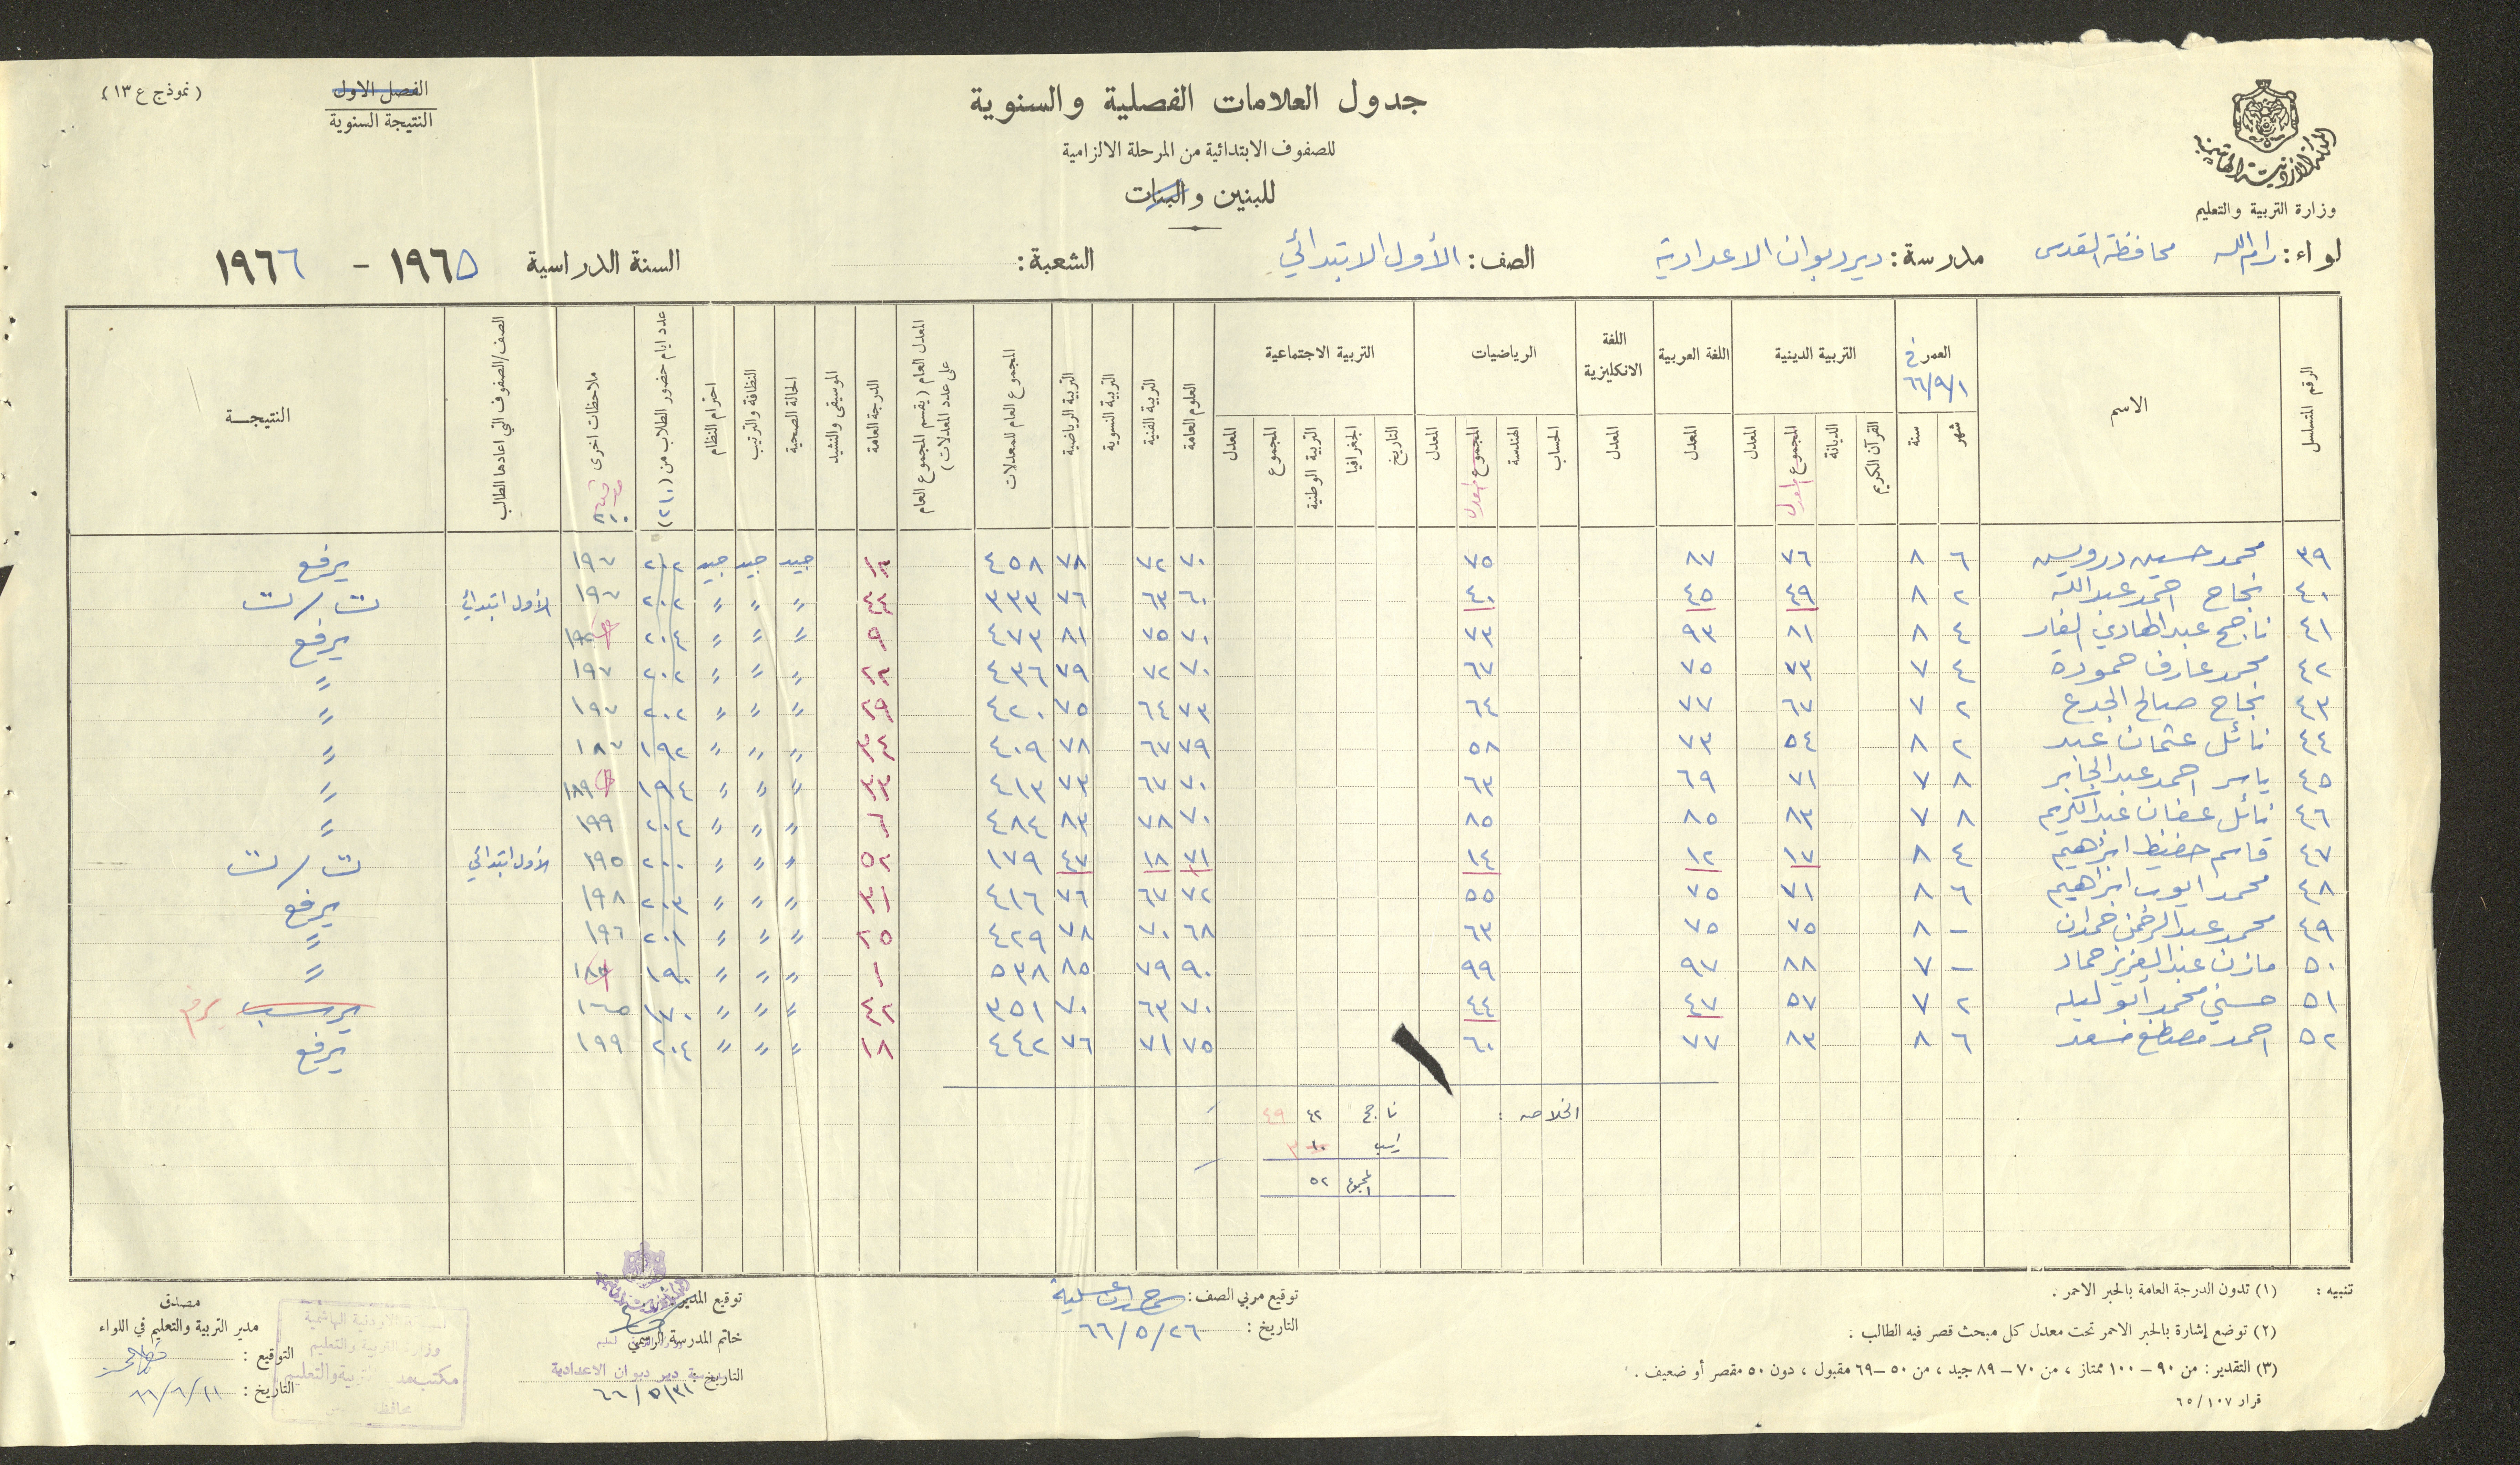 (نموذج ع ١٣)
الفصل الاول
النتيجة السنوية
جدول العلامات الفصلية والسنوية
للصفوف الابتدائية من المرحلة الالزامية
للبنين والبنات
المملكة الاردنية الهاشمية
وزارة التربية والتعليم
لواء: رام الله محافظة القدس مدرسة: ديردبوان الاعدادية الصف: الأول الابتدائي الشعبة: السنة الدراسية ١٩٦٥ - ١٩٦٦
الرقم المتسلسل
الاسم
العمر في ٦٦/٩/١
شهر سنة
التربية الدينية
القرآن الكريم الديانة المجموع المعدل المعدل
اللغة العربية
المعدل
اللغة الانكليزية
المعدل
الرياضيات
الحساب الهندسة المجموع المعدل المعدل
التربية الاجتماعية
التاريخ الجغرافيا التربية الوطنية المجموع المعدل
العلوم العامة
التربية الفنية
التربية النسوية
التربية الرياضية
المجموع العام للمعدلات
المعدل العام (يقسم المجموع العام على عدد المعدلات)
الدرجة العامة
الموسيقى والنشيد
الحالة الصحية
النظافة والترتيب
احترام النظام
عدد ايام حضور الطلاب من (٢١٠)
ملاحظات اخرى
الصف/الصفوف التي اعادها الطالب
النتيجــة
٣٩ محمد حسين درويش ٦ ٨ ٧٦ ٨٧ ٧٥ ٧٠ ٧٢ ٧٨ ٤٥٨ جيد جيد جيد ٢٠٢ ١٩٧ يرفع
٤٠ نجاح احمد عبد الله ٢ ٨ ٤٩ ٤٥ ٤٠ ٦٠ ٦٣ ٧٦ ٣٣٣ " " " ٢٠٢ ١٩٧ الأول ابتدائي ت/ت
٤١ ناجح عبد الهادي الفار ٤ ٨ ٨١ ٩٣ ٧٣ ٧٠ ٧٥ ٨١ ٤٧٣ " " " ٢٠٤ يرفع
٤٢ محمد عارف حموده ٤ ٧ ٧٣ ٧٥ ٦٧ ٧٠ ٧٢ ٧٩ ٤٣٦ " " " ٢٠٢ ١٩٧ "
٤٣ نجاح صالح الجدع ٢ ٧ ٦٧ ٧٧ ٦٤ ٧٣ ٦٤ ٧٥ ٤٢٠ " " " ٢٠٢ ١٩٧ "
٤٤ نائل عثمان عبد ٢ ٨ ٥٤ ٧٣ ٥٨ ٧٩ ٦٧ ٧٨ ٤٠٩ " " " ١٩٢ ١٨٧ "
٤٥ ياسر احمد عبد الجابر ٨ ٧ ٧١ ٦٩ ٦٣ ٧٠ ٦٧ ٧٣ ٤١٣ " " " ١٩٤ ١٨٩ "
٤٦ نائل عفان عبد الكريم ٨ ٧ ٨٣ ٨٥ ٨٥ ٧٠ ٧٨ ٨٣ ٤٨٤ " " " ٢٠٤ ١٩٩ "
٤٧ قاسم حفيظ ابراهيم ٤ ٨ ١٧ ١٢ ١٤ ٧١ ١٨ ٤٧ ١٧٩ " " " ٢٠٠ ١٩٥ الأول ابتدائي ت/ت
٤٨ محمد ايوب ابراهيم ٦ ٨ ٧١ ٧٥ ٥٥ ٧٢ ٦٧ ٧٦ ٤١٦ " " " ٢٠٣ ١٩٨ يرفع
٤٩ محمد عبد الرحمن حمدان - ٨ ٧٥ ٧٥ ٦٣ ٦٨ ٧٠ ٧٨ ٤٢٩ " " " ٢٠١ ١٩٦ "
٥٠ مازن عبد العزيز حماد - ٧ ٨٨ ٩٧ ٩٩ ٩٠ ٧٩ ٨٥ ٥٣٨ " " " ١٩٠ "
٥١ حسني محمد ابو ليله ٢ ٧ ٥٧ ٤٧ ٤٤ ٧٠ ٦٣ ٧٠ ٣٥١ " " " ١٧٠ ١٦٥ يرسب يرفع
٥٢ احمد مصطفى سعد ٦ ٨ ٨٣ ٧٧ ٦٠ ٧٥ ٧١ ٧٦ ٤٤٢ " " " ٢٠٤ ١٩٩ يرفع
الخلاصه : ناجح ٤٢ ٤٩
راسب ١٠ ٣
المجموع ٥٢
تنبيه : (١) تدون الدرجة العامة بالحبر الاحمر .
(٢) توضع إشارة بالحبر الاحمر تحت معدل كل مبحث قصر فيه الطالب .
(٣) التقدير : من ٩٠ - ١٠٠ ممتاز ، من ٧٠ - ٨٩ جيد ، من ٥٠ - ٦٩ مقبول ، دون ٥٠ مقصر أو ضعيف .
قرار ٦٥/١٠٧
توقيع مربي الصف :
التاريخ : ٦٦/٥/٢٦
توقيع المدير :
خاتم المدرسة الرسمي
دير دبوان الاعدادية
التاريخ ٦٦/٥/٣١
مصدق
مدير التربية والتعليم في اللواء
التوقيع :
التاريخ : ٦٦/٦/١١
الاردنية الهاشمية
وزارة التربية والتعليم
مكتب التربية والتعليم